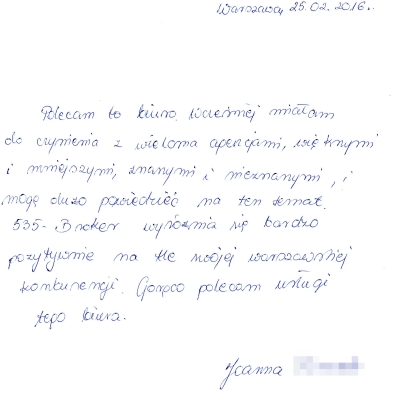 Warszawa, 25.02.2016r.
Polecam to biuro. Wcześniej miałam
do czynienia z wieloma agencjami, większymi
i mniejszymi, znanymi i nieznanymi, i
mogę dużo powiedzieć na ten temat.
535- Broker wyróżnia się bardzo
pozytywnie na tle swojej warszawskiej
konkurencji. Gorąco polecam usługi
tego biura.
Joanna